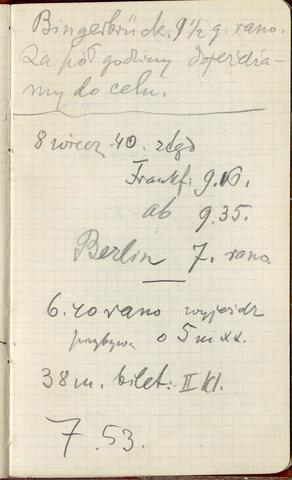 Bingerbrück. 9 1/2 g. rano.
Za pół godziny dojeżdża-
my do celu.
8 wiecz. 40.
Frankf. 9.16.
ab 9.35.
Berlin 7. rano
6.40 rano wyjazd
przybywa o 5 m xx.
38 m. bilet: II kl.
7.53.